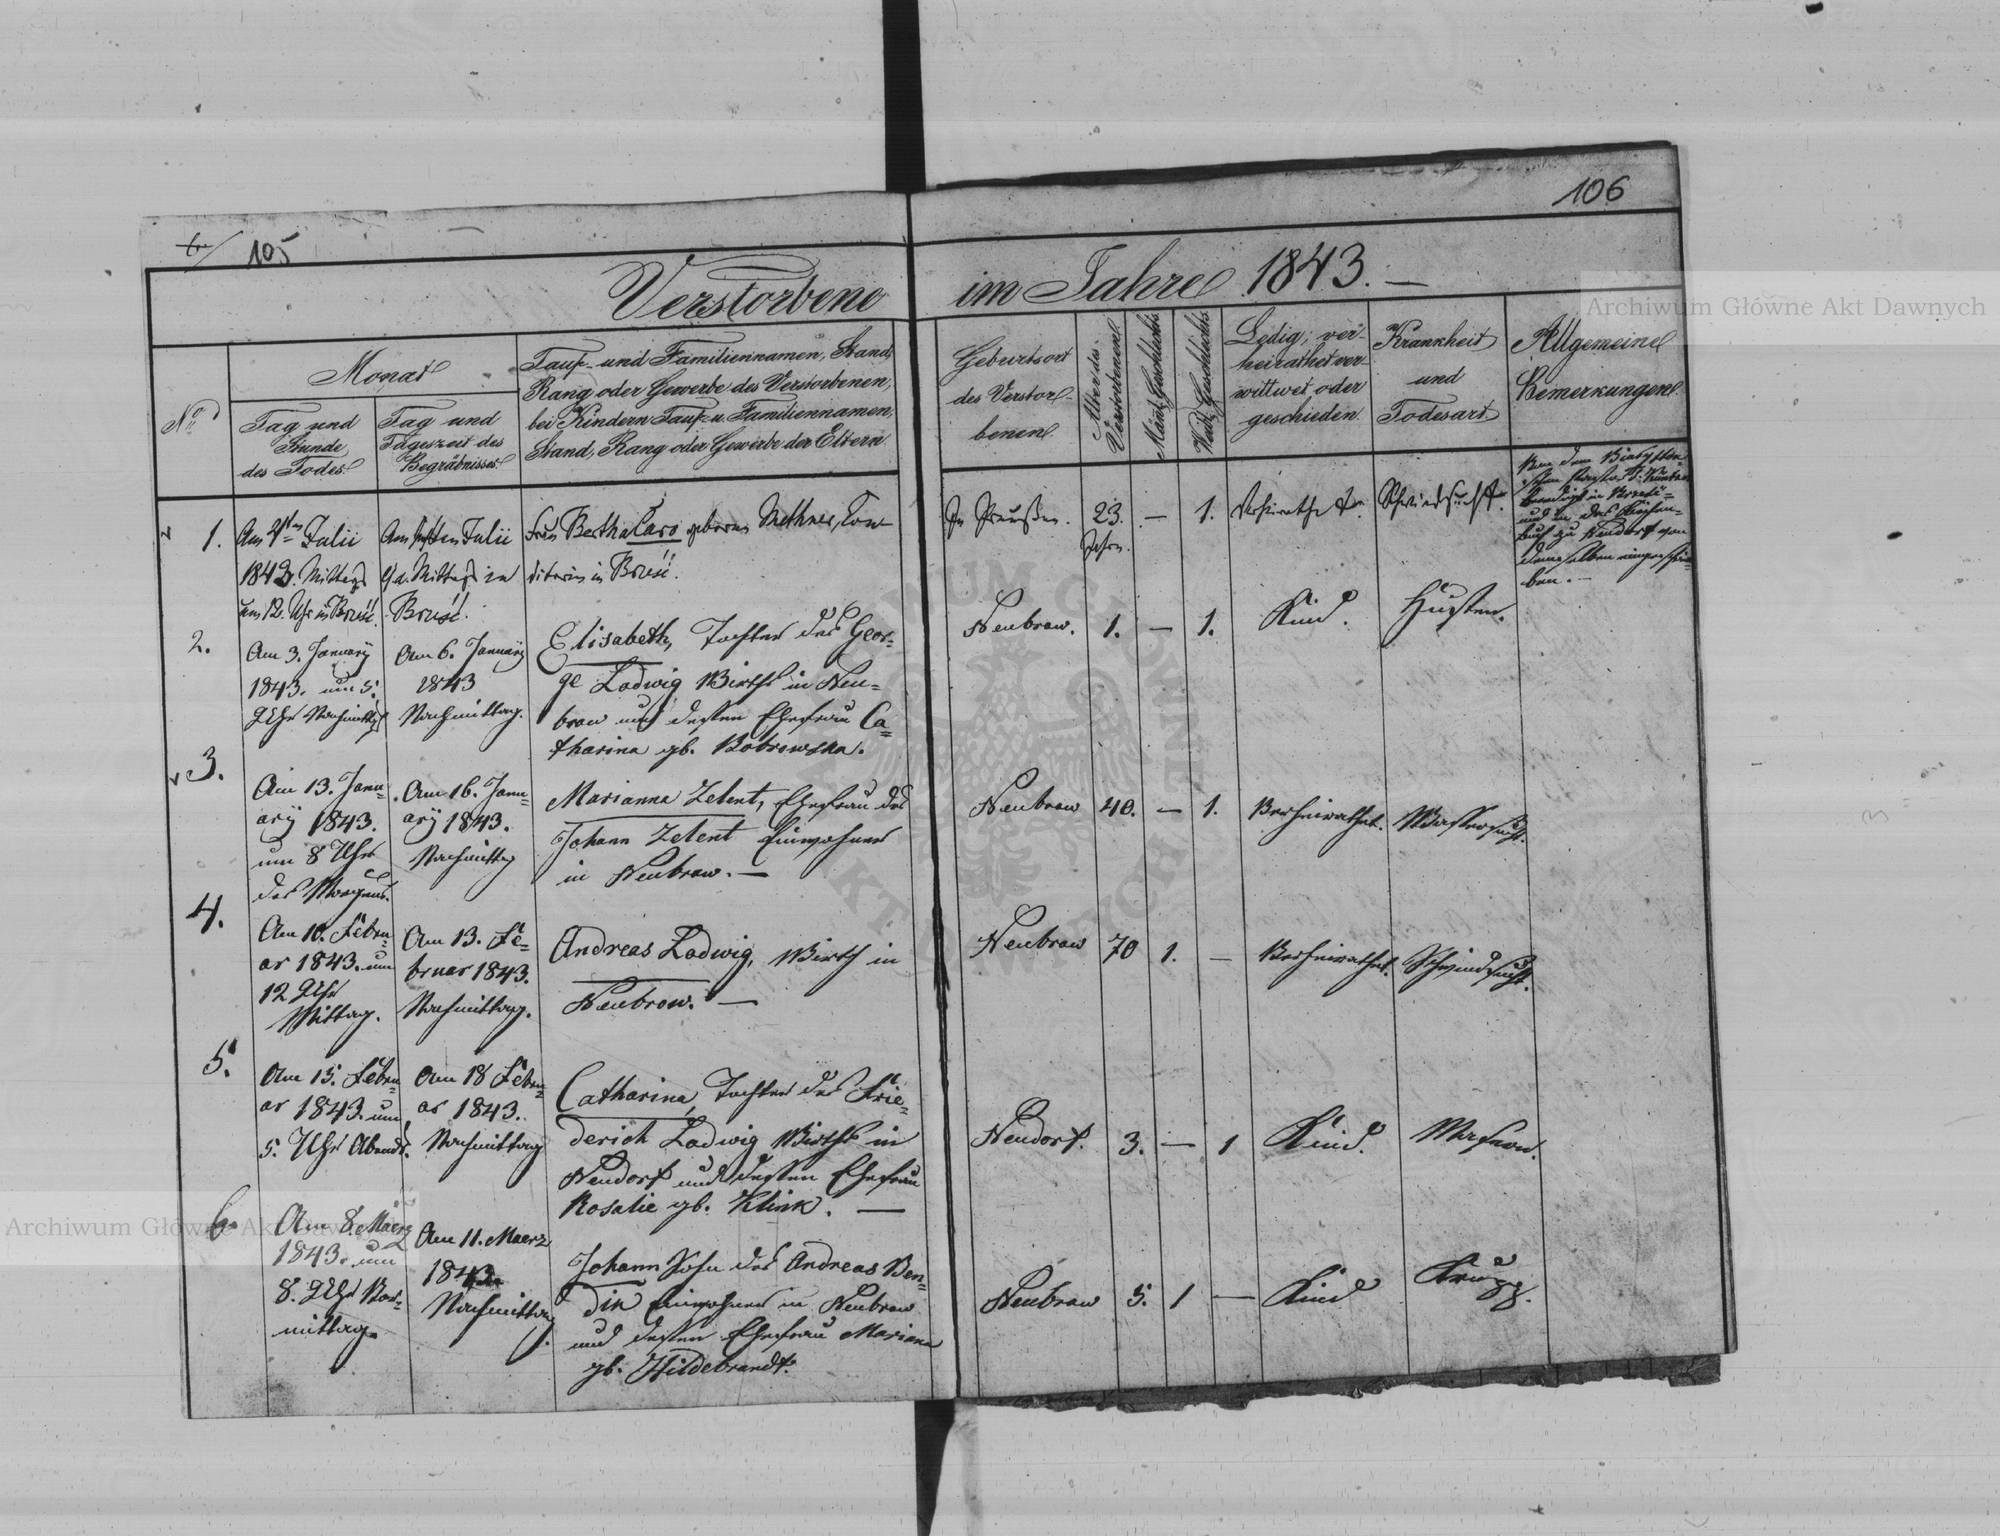 106
105
Verstorbene im Jahre 1843. —
Archiwum Główne Akt Dawnych
No
Monat
Tag und
Stunde
des Todes.
Tag und
Tageszeit des
Begräbnisses.
Tauf- und Familiennamen, Stand,
Rang oder Gewerbe des Verstorbenen,
bei Kindern Tauf- u. Familiennamen,
Stand, Rang oder Gewerbe der Eltern.
Geburtsort
des Verstor-
benen.
Alter des
Verstorbenen
Mänl. Geschlechts
Weibl. Geschlechts
Ledig, ver-
heirathet ver-
wittwet oder
geschieden.
Krankheit
und
Todesart
Allgemeine
Bemerkungen.
1.
Julii
1843. Mittags
um 12. Uhr in Brześć.
Julii
Mittags in
Brześć.
Frau Bertha Caro geborene Methner, Con-
ditorin in Brześć.
In Preußen.
23.
Jahre.
—
1.
Schwindsucht.
Von dem
in
und in das Kirchen-
buch zu Neudorf von
demselben eingeschrie-
ben. —
2.
Am 3. Januarÿ
1843. um 5.
Uhr Nachmittags
Am 6. Januarÿ
1843
Nachmittag.
Elisabeth, Tochter des Geor-
ge Ludwig Wirths in Neu-
brow und dessen Ehefrau Ca-
tharina gb. Bobrowska.
Neubrow.
1.
—
1.
Kind.
Husten.
3.
Am 13. Janu-
arÿ 1843.
um 8 Uhr
des Morgens.
Am 16. Janu-
arÿ 1843.
Nachmittag
Marianna Zelent, Ehefrau des
Johann Zelent Einwohner
in Neubrow. —
Neubrow
40.
—
1.
Verheirathet.
Wassersucht.
4.
Am 10. Febru-
ar 1843. um
12 Uhr
Mittag.
Am 13. Fe-
bruar 1843.
Nachmittag.
Andreas Ludwig, Wirth in
Neubrow. —
Neubrow
70
1.
—
Verheirathet.
Schwindsucht.
5.
Am 15. Febru-
ar 1843. um
5. Uhr Abends.
Am 18 Febru-
ar 1843.
Nachmittag
Catharina, Tochter des Frie-
derich Ludwig Wirths in
Neudorf und dessen Ehefrau
Rosalie gb. Klink. —
Neudorf.
3.
—
1
Kind.
Masern.
6.
Am 8. Maerz
1843. um
8. Uhr Vor-
mittag.
Am 11. Maerz
1843
Nachmittag.
Johann Sohn des Andreas Ben-
dik Einwohner in Neubrow
und dessen Ehefrau Mariana
gb. Hildebrandt.
Neubrow
5.
1
—
Kind
Krupp.
Archiwum Główne Akt Dawnych